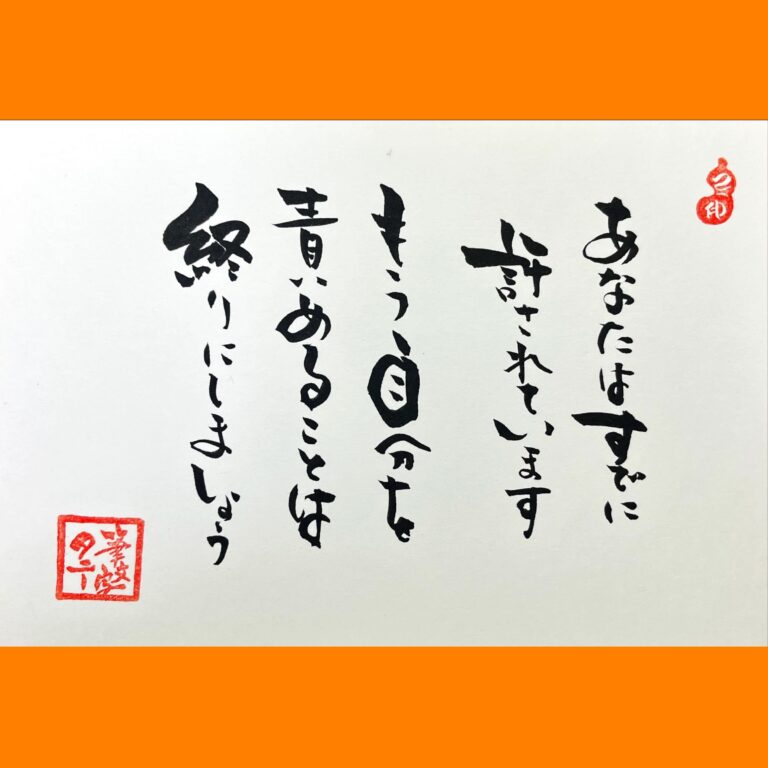 あなたはすでに
許されています
もう自分を
責めることは
終りにしましょう